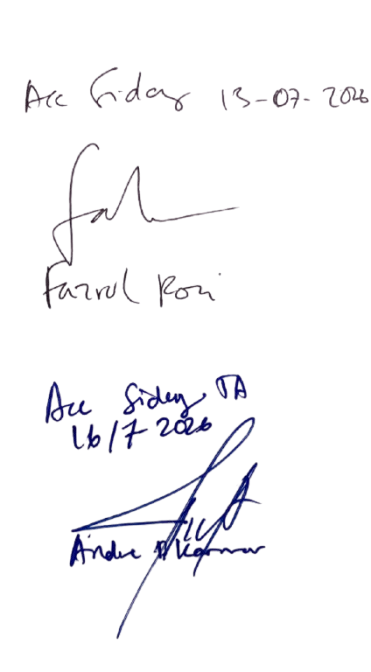 Acc Sidang 13-07-2026
Fazrol Rozi
Acc Sidang TA
16/7 2026
Andre